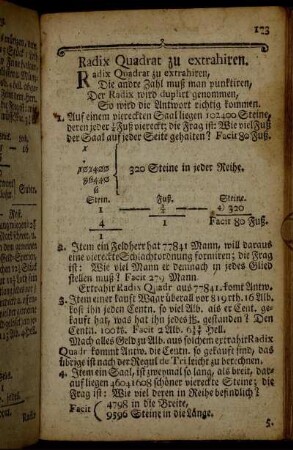 123
Radix Quadrat zu extrahiren.
Radix Quadrat zu extrahiren,
Die andre Zahl muß man punktiren,
Der Radix wird duplirt genommen,
So wird die Antwort richtig kommen.
1. Auf einem viereckten Saal liegen 102400 Steine,
deren jeder ¼ Fuß viereckt; die Frag ist: Wie viel Fuß
der Saal auf jeder Seite gehalten? Facit 80 Fuß.
102400
96440
6
320 Steine in jeder Reihe.
Stein. Fuß. Steine.
1 — ¼ — 4) 320
4 1 Facit 80 Fuß.
1
2. Item ein Feldherr hat 77841 Mann, will daraus
eine viereckte Schlachtordnung formiren; die Frag
ist: Wie viel Mann er demnach in jedes Glied
stellen muß? Facit 279 Mann.
Extrahir Radix Quadr aus 77841. komt Antw.
3. Item einer kauft Waar überall vor 819 rth. 16 Alb.
kost ihn jeden Centn. so viel Alb. als er Cent. ge-
kauft hat, was hat ihn jedes ℔. gestanden? Den
Centn. 100 ℔. Facit 2 Alb. Hell.
Mach alles Geld zu Alb. aus solchem extrahir Radix
Quadr kommt Antw. wie Centn. so gekauft sind, das
übrige ist nach der Regul de Tri leicht zu berechnen.
4. Item ein Saal, ist zweymal so lang, als breit, dar-
auf liegen 46041608 schöner viereckte Steine; die
Frag ist: Wie viel deren in Reihe befindlich?
Facit { 4798 in die Breite,
9596 Steine in die Länge.
5.